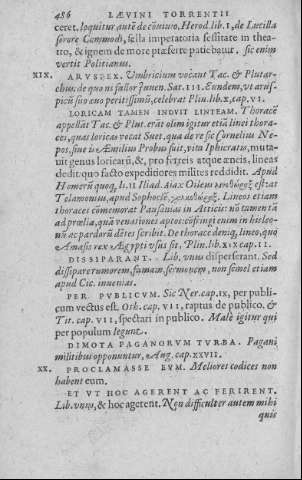 486 LÆVINI TORRENTII
ceret. loquitur autē de cōviuio. Herod. lib. I, de Lucilla
sorore Commodi, sella imperatoria sessitate in thea-
tro, & ignem de more præferre patiebatur. sic enim
vertit Politianus.
XIX. ARVSPEX. Vmbricium vocant Tac. & Plutar-
chus: de quo ni fallor Juuen. Sat. III. Eundem, vt aruf-
picū suo euo peritissimū, celebrat Plin. lib. X, cap. VI.
LORICAM TAMEN INDVIT LINTEAM. Thoracē
appellāt Tac. & Plut. erāt olim igitur etiā linei thora-
ces, quas loricas vocat Suet. qua de re sic Cornelius Ne-
pos, siue is Æmilius Probus fuit, vita Iphicratis, muta-
uit genus loricarū, &, pro ferreis atque æneis, lineas
dedit: quo facto expeditiores milites reddidit. Apud
Homerū quoq, li. II Iliad. Aiax Oilei est at
Telamonius, apud Sophoclē. Lineos etiam
thoraces cōmemorat Pausanias in Atticis: nō tamen tā
ad prælia, quā venationes aptos: cōfringi enim in iis leo-
nū ac pardorū dētes scribit. De thorace deniq, lineo, quo
Amasis rex Ægypti vsus sit, Plin. lib. XIX cap. II.
DISSIPARANT. Lib. vnus disperserant. Sed
dissipare rumorem, famam, sermonem, non semel etiam
apud Cic. inuenias.
PER PVBLICVM. Sic Ner. cap. IX, per publi-
cum vectus est. Oth. cap. VII, raptus de publico. &
Tit. cap. VII, spectari in publico. Malè igitur qui
per populum legunt.
DIMOTA PAGANORVM TVRBA. Pagani
militibus opponuntur, Aug. cap. XXVII.
XX. PROCLAMASSE EVM. Meliores codices non
habent eum.
ET VT HOC AGERENT AC FERIRENT.
Lib. vnus, & hoc agerent. Non difficulter autem mihi
quis